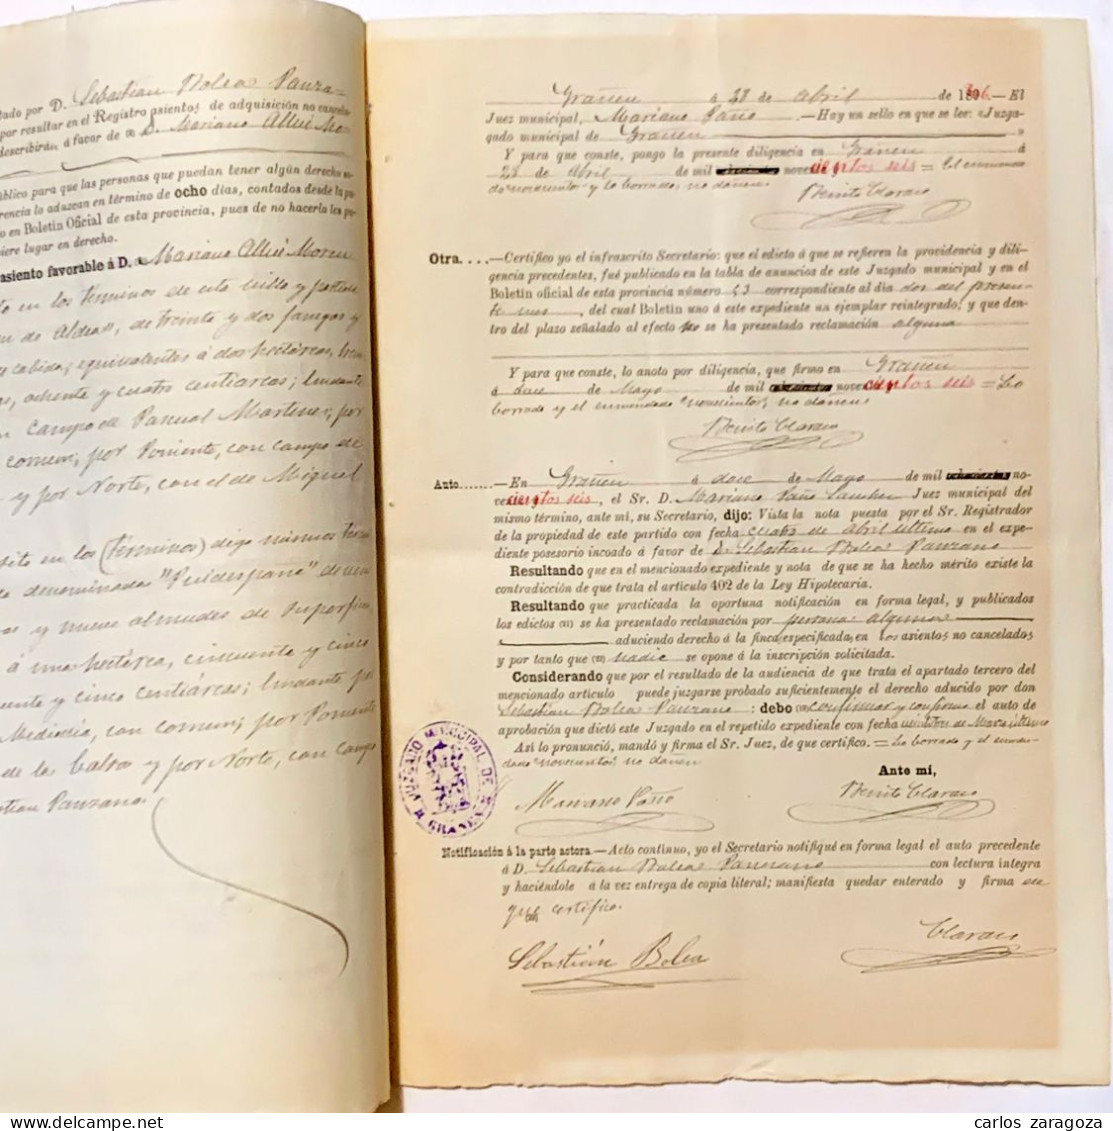 tado por D. Sebastián Bolea Panza-
por resultar en el Registro asientos de adquisición no cancela-
describirá, á favor de D. Mariano Allué Mo-
úblico para que las personas que puedan tener algún derecho
rencia lo aduzcan en término de ocho días, contados desde la pu-
o en Boletín Oficial de esta provincia, pues de no hacerlo les pa-
biere lugar en derecho.
asiento favorable á D. Mariano Allué Moren
to en los términos de esta villa y partida
de Aldea, de treinta y dos fanegas y
cabida, equivalentes á dos hectáreas,
ochenta y cuatro centiareas; lindante
campo de Pascual Martínez; por
comun; por Poniente, con campo de
y por Norte, con el de Miguel
sito en los (términos) digo mismos
denominada "Puldespaña" de
y nueve almudes de superficie,
á una hectárea, cincuenta y cinco
y cinco centiáreas; lindante por
Mediodia, con comun; por Poniente
de la balsa y por Norte, con campo
Panzano.
Grañen á 28 de Abril de 1896.—El
Juez municipal, Mariano Paño.—Hay un sello en que se lee: «Juzga-
gado municipal de Grañen»
Y para que conste, pongo la presente diligencia en Grañen á
28 de Abril de mil novecientos seis = El enmenda-
do novecientos y lo borrado, no dañen
Benito Claraco
Otra....—Certifico yo el infrascrito Secretario: que el edicto á que se refieren la providencia y dili-
gencia precedentes, fué publicado en la tabla de anuncios de este Juzgado municipal y en el
Boletín oficial de esta provincia número 53 correspondiente al día dos del presen-
te mes, del cual Boletín uno á este expediente un ejemplar reintegrado; y que den-
tro del plazo señalado al efecto no se ha presentado reclamación alguna
Y para que conste, lo anoto por diligencia, que firmo en Grañen
á doce de Mayo de mil novecientos seis = Lo
borrado y el enmendado "novecientos", no dañen
Benito Claraco
Auto......—En Grañen á doce de Mayo de mil ochocientos no-
vecientos seis, el Sr. D. Mariano Paño Sanchez Juez municipal del
mismo término, ante mí, su Secretario, dijo: Vista la nota puesta por el Sr. Registrador
de la propiedad de este partido con fecha cuatro de Abril último en el expe-
diente posesorio incoado á favor de D. Sebastián Bolea Panzano
Resultando que en el mencionado expediente y nota de que se ha hecho mérito existe la
contradicción de que trata el artículo 402 de la Ley Hipotecaria.
Resultando que practicada la oportuna notificación en forma legal, y publicados
los edictos (10) se ha presentado reclamación por persona alguna
aduciendo derecho á la finca especificada, en los asientos no cancelados
y por tanto que (10) nadie se opone á la inscripción solicitada.
Considerando que por el resultado de la audiencia de que trata el apartado tercero del
mencionado artículo puede juzgarse probado suficientemente el derecho aducido por don
Sebastián Bolea Panzano: debo confirmar y confirmo el auto de
aprobación que dictó este Juzgado en el repetido expediente con fecha veintitres de Marzo último
Así lo pronunció, mandó y firma el Sr. Juez, de que certifico. = Lo borrado y el enmen-
dado "novecientos", no dañen
Ante mí,
Mariano Paño
Benito Claraco
JUZGADO MUNICIPAL DE GRAÑEN
Notificación á la parte actora.—Acto continuo, yo el Secretario notifiqué en forma legal el auto precedente
á D. Sebastián Bolea Panzano con lectura íntegra
y haciéndole á la vez entrega de copia literal; manifiesta quedar enterado y firma de
que certifico.
Sebastián Bolea
Claraco
carlos zaragoza